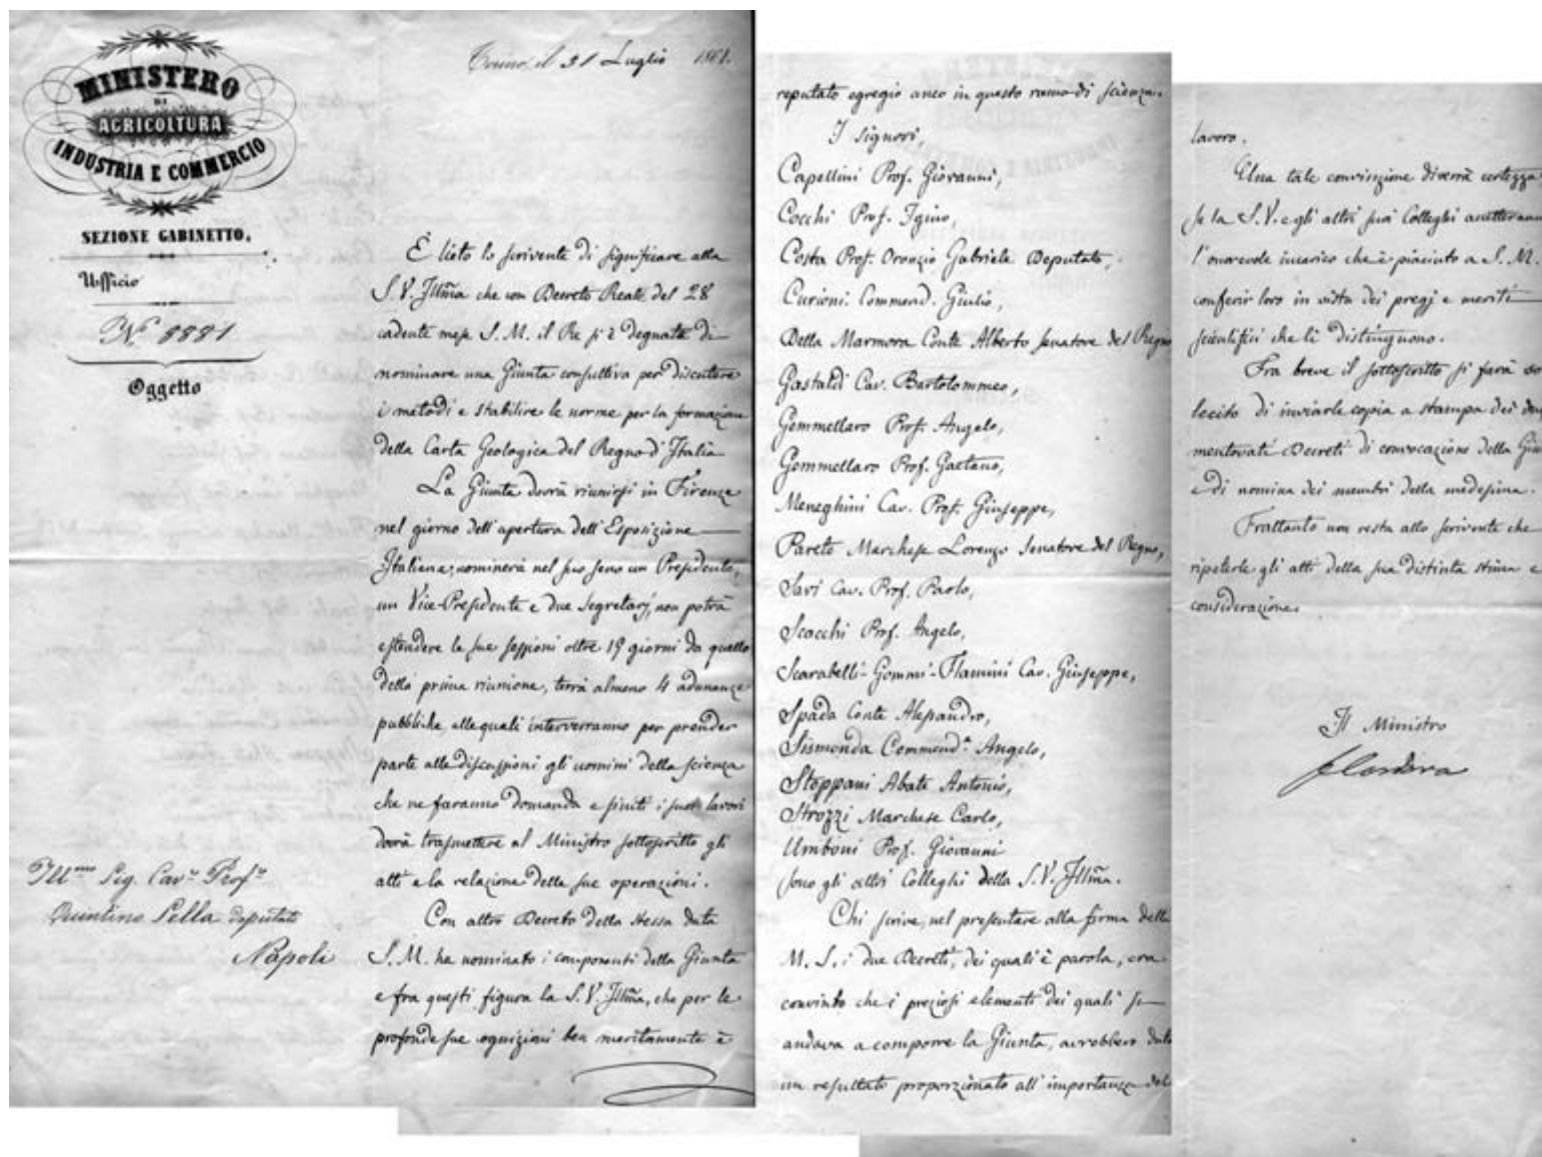 MINISTERO
DI
AGRICOLTURA
INDUSTRIA E COMMERCIO
SEZIONE GABINETTO.
Ufficio
N.° 8881
Oggetto
Ill.mo Sig. Cav.re Prof.re
Quintino Sella deputato
Napoli
Torino, il 31 Luglio 1861.
È lieto lo scrivente di significare alla
S. V. Ill̃ma che con Decreto Reale del 28
cadente mese S. M. il Re si è degnata di
nominare una Giunta consultiva per discutere
i metodi e stabilire le norme per la formazione
della Carta Geologica del Regno d'Italia
La Giunta dovrà riunirsi in Firenze
nel giorno dell'apertura dell'Esposizione
Italiana, nominerà nel suo seno un Presidente,
un Vice-Presidente e due Segretarj, non potrà
estendere le sue sessioni oltre 15 giorni da quello
della prima riunione, terrà almeno 4 adunanze
pubbliche, alle quali interverranno per prender
parte alle discussioni gli uomini della scienza
che ne faranno domanda e finiti i suoi lavori
dovrà trasmettere al Ministro sottoscritto gli
atti e la relazione delle sue operazioni.
Con altro Decreto della stessa data
S. M. ha nominato i componenti della Giunta
e fra questi figura la S. V. Ill̃ma, che per le
profonde sue cognizioni ben meritamente è
reputato egregio anco in questo ramo di scienza.
I Signori,
Capellini Prof. Giovanni,
Cocchi Prof. Igino,
Costa Prof. Oronzio Gabriele Deputato,
Curioni Commend. Giulio,
Della Marmora Conte Alberto Senatore del Regno
Gastaldi Cav. Bartolommeo,
Gemmellaro Prof. Angelo,
Gemmellaro Prof. Gaetano,
Meneghini Cav. Prof. Giuseppe,
Pareto Marchese Lorenzo Senatore del Regno,
Savi Cav. Prof. Paolo,
Scacchi Prof. Angelo,
Scarabelli-Gommi-Flamini Cav. Giuseppe,
Spada Conte Alessandro,
Sismonda Commend.e Angelo,
Stoppani Abate Antonio,
Strozzi Marchese Carlo,
Omboni Prof. Giovanni
sono gli altri Colleghi della S. V. Ill̃ma.
Chi scrive, nel presentare alla firma della
M. S. i due Decreti, dei quali è parola, era
convinto che i preziosi elementi dei quali si
andava a comporre la Giunta, avrebbero dato
un resultato proporzionato all'importanza del
lavoro.
Una tale convinzione diverrà certezza
se la S. V. e gli altri suoi Colleghi accetteranno
l'onorevole incarico che è piaciuto a S. M.
conferir loro in vista dei pregj e meriti
scientifici che li distinguono.
Fra breve il sottoscritto si farà sol
lecito di inviarle copia a stampa dei due
mentovati Decreti di convocazione della Giunta
e di nomina dei membri della medesima.
Frattanto non resta allo scrivente che
ripeterle gli atti della sua distinta stima e
considerazione.
Il Ministro
Cordova